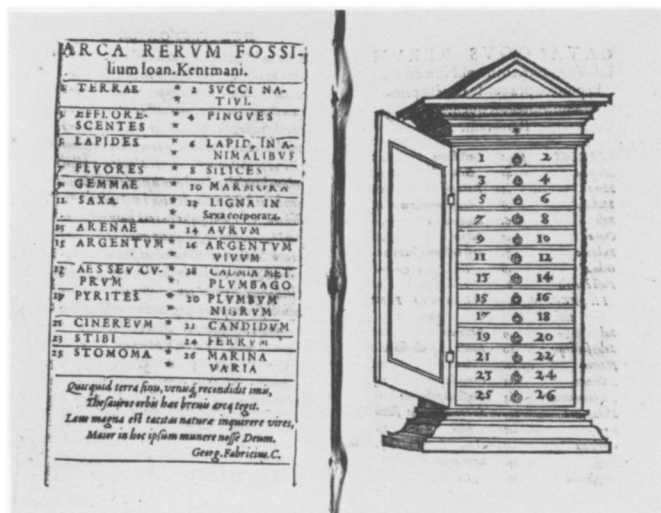 ARCA RERVM FOSSI-
lium Ioan. Kentmani.
1. TERRAE * 2 SVCCI NA-
TIVI.
3. EFFLORE- * 4 PINGVES
SCENTES
5 LAPIDES * 6 LAPID. IN A-
NIMALIBVS
7 FLVORES * 8 SILICES
9. GEMMAE * 10 MARMORA
11. SAXA * 12 LIGNA IN
Saxa corporata.
13 ARENAE * 14 AVRVM
15 ARGENTVM * 16 ARGENTVM
VIVVM
17 AES SEV CV- * 18 CADMIA MET.
PRVM PLVMBAGO
19 PYRITES * 20 PLVMBVM
NIGRVM
21 CINEREVM * 22 CANDIDVM
23 STIBI * 24 FERRVM
25 STOMOMA * 26 MARINA
VARIA
Quicquid terra sinu, veniisq; recondidit imis,
Thesauros orbis hæc brevis arca tegit.
Laus magna est tacitas naturæ inquirere vires,
Maior in hoc ipsum munere nosse Deum.
Georg. Fabricius. C.
1 2
3 4
5 6
7 8
9 10
11 12
13 14
15 16
17 18
19 20
21 22
23 24
25 26